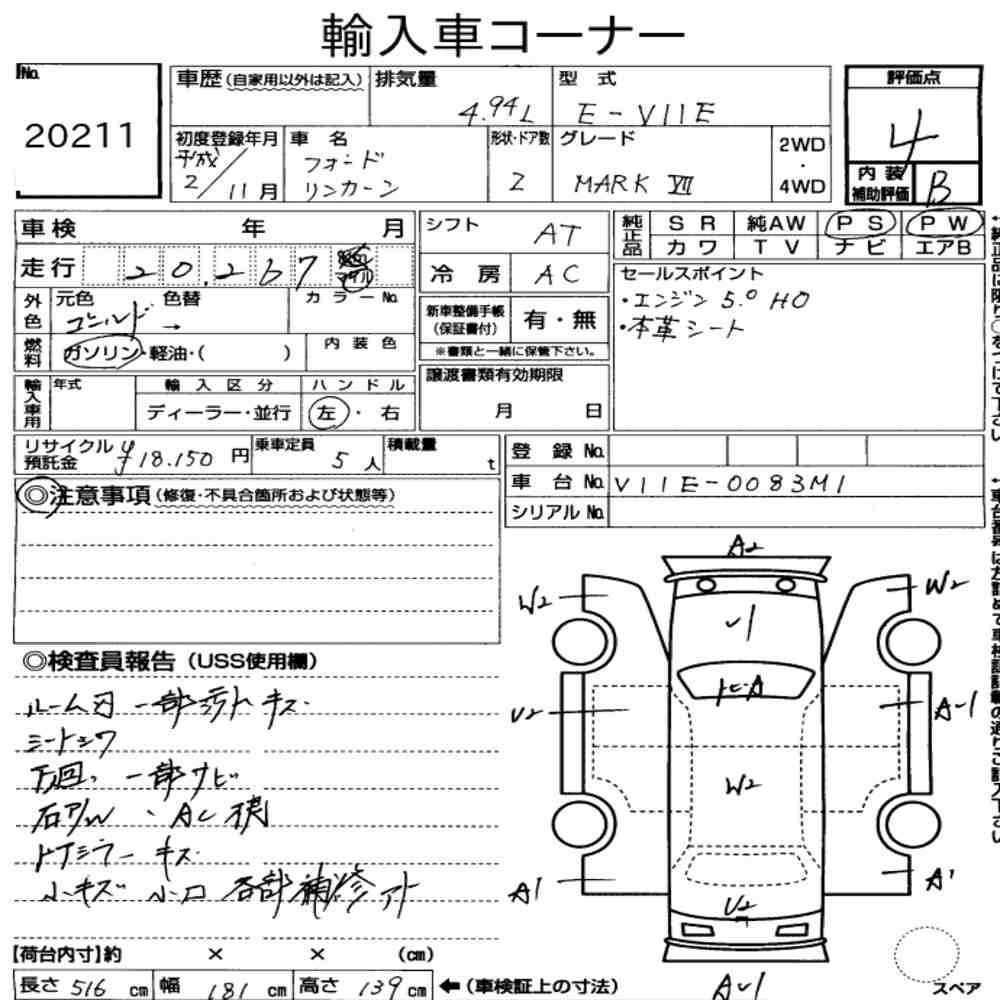 輸入車コーナー
No. 20211
車歴 (自家用以外は記入)
排気量 4.94L
型式 E-V11E
評価点 4
初度登録年月 平成 2/11月
車名 フォード リンカーン
形状・ドア数 2
グレード MARK VII
2WD・4WD
内装補助評価 B
車検 年 月
走行 20,267 マイル
シフト AT
冷房 AC
純正品 SR 純AW PS PW
カワ TV ナビ エアB
セールスポイント
・エンジン 5.0 HO
・本革シート
外色 元色 ゴールド → 色替 カラーNo.
燃料 ガソリン・軽油・( ) 内装色
新車整備手帳(保証書付) 有・無
※書類と一緒に保管下さい。
輸入車用 年式 輸入区分 ハンドル
ディーラー・並行 左・右
譲渡書類有効期限
月 日
リサイクル預託金 ¥18.150円
乗車定員 5人
積載量 t
登録No.
車台No. V11E-0083M1
シリアルNo.
◎注意事項 (修復・不具合箇所および状態等)
◎検査員報告 (USS使用欄)
ルーム内 一部汚れ キズ
シートシワ
下回り 一部サビ
キズ
小キズ 各部補修アト
A2
W2
W2
U1
U2
A-1
W2
A1
A1
U2
A-1
【荷台内寸】約 × × (cm)
長さ 516 cm 幅 181 cm 高さ 139 cm ←(車検証上の寸法)
スペア